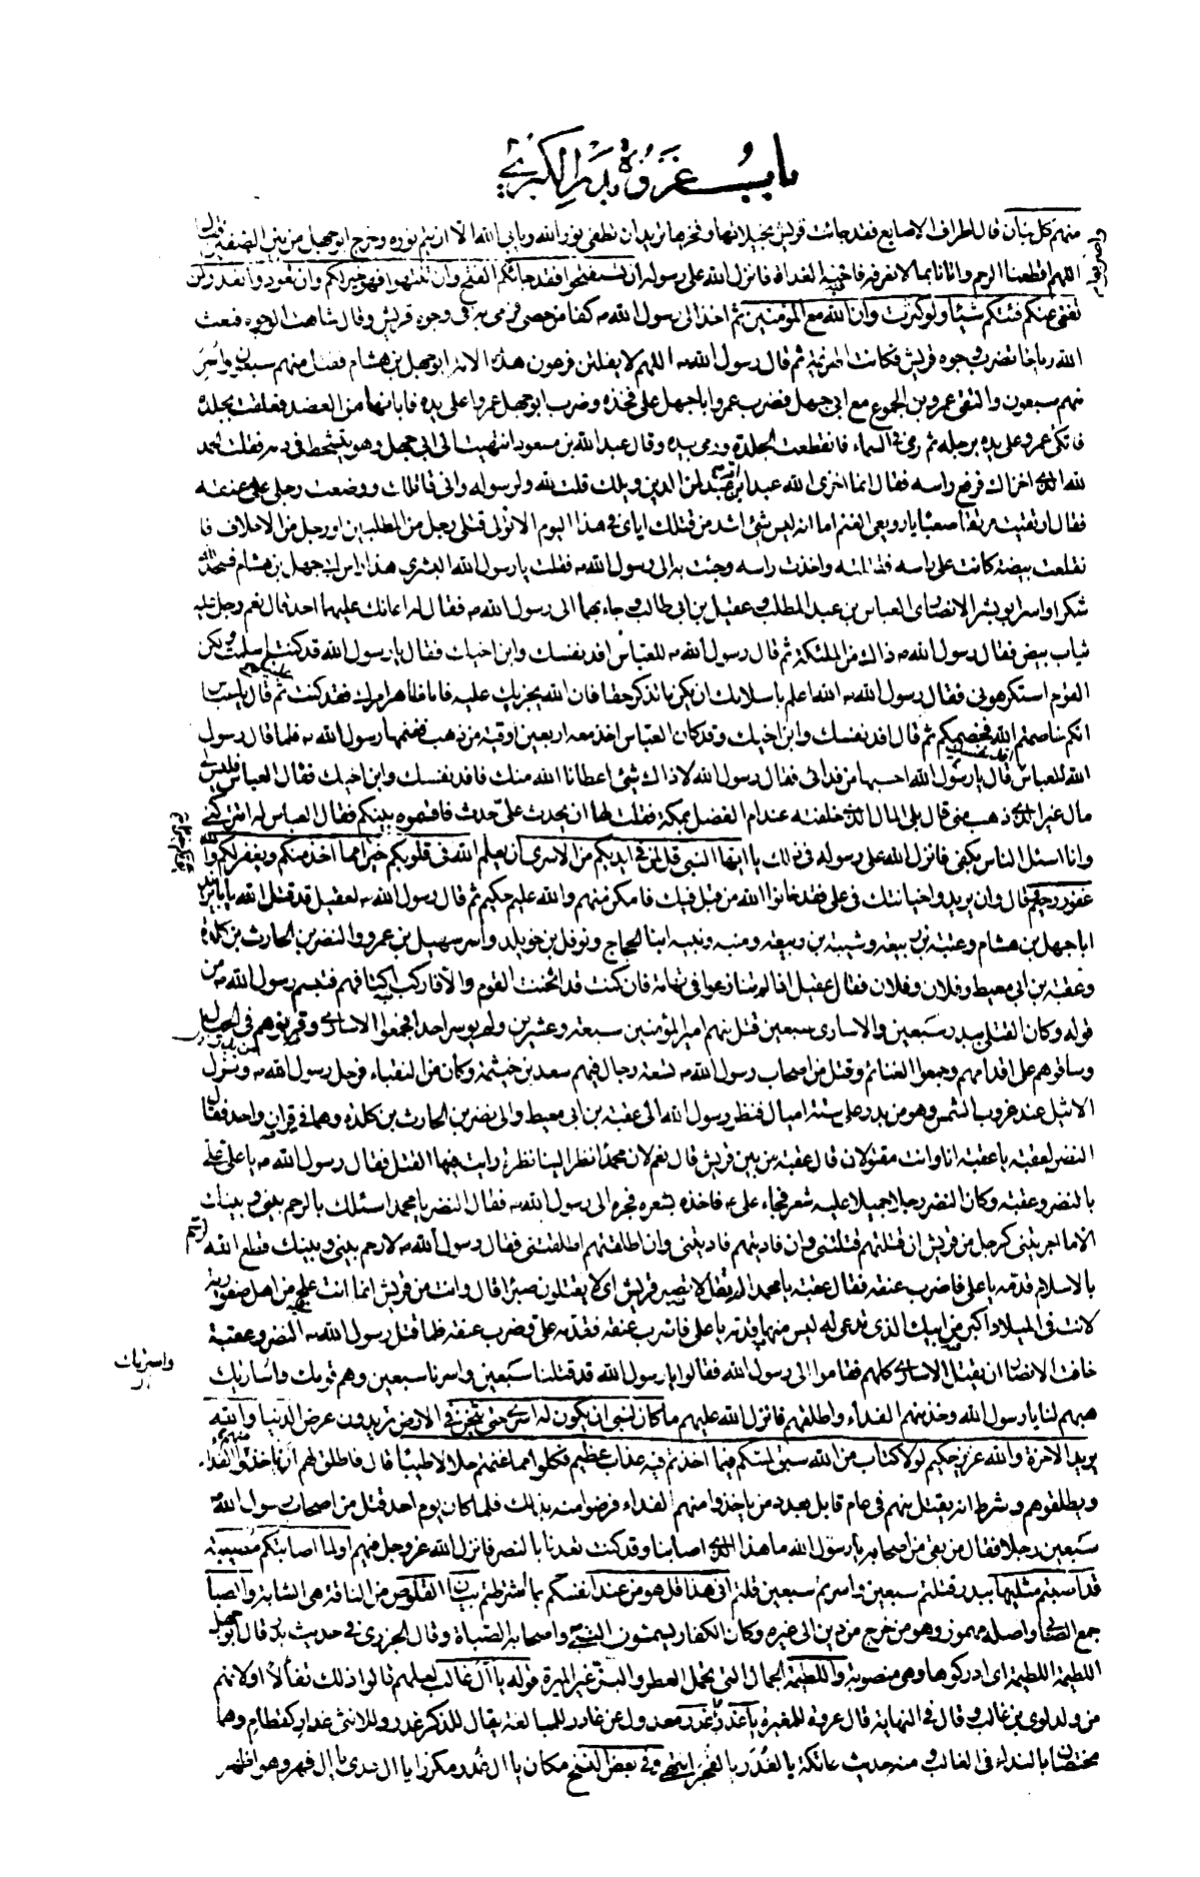 باب غزوة بدر الكبرى
منهم كل بنان قال اطراف الاصابع فقد جائت قريش بخيلائها وفخرها تريد ان تطفئ نور الله ويابى الله الا ان يتم نوره وخرج ابو جهل من بين الصفين فقال
اللهم اقطعنا الرحم واتانا بما لا نعرفه فاحنه الغداة فانزل الله على رسوله ان تستفتحوا فقد جائكم الفتح وان تنتهوا فهو خير لكم وان تعودوا نعد ولن
تغنى عنكم فئتكم شيئا ولو كثرت وان الله مع المؤمنين ثم اخذ رسول الله ص كفا من حصى فرمى به فى وجوه قريش وقال شاهت الوجوه فبعث
الله رياحا تضرب وجوه قريش فكانت الهزيمة ثم قال رسول الله ص اللهم لا يفلتن فرعون هذه الامة ابو جهل بن هشام فقتل منهم سبعون واسر
منهم سبعون والتقى عمرو بن الجموع مع ابى جهل فضرب عمرو ابا جهل على فخذه وضرب ابو جهل عمروا على يده فابانها من العضد فعلقت بجلدة
فاتكى عمرو على يده برجله ثم رمى فى السماء فانقطعت الجلدة ورمى بيده وقال عبد الله بن مسعود انتهيت الى ابى جهل وهو يتشحط فى دمه فقلت الحمد
لله الذى اخزاك فرفع راسه فقال انما اخزى الله عبد ابن ام عبد لمن الدين ويلك قلت لله ولرسوله وانى قاتلك ووضعت رجلى على عنقه
فقال ارتقيت مرتقا صعبا يا رويعى الغنم اما انه ليس شئ اشد من قتلك اياى فى هذا اليوم الا تولى قتلى رجل من المطلبين او رجل من الاحلاف فا
نقلعت بيضة كانت على راسه فقتلته واخذت راسه وجئت به الى رسول الله ص فقلت يا رسول الله البشرى هذا راس ابى جهل بن هشام فسجد لله
شكرا واسر ابو بشر الانصارى العباس بن عبد المطلب وعقيل بن ابى طالب وجاء بهما الى رسول الله ص فقال له اعانك عليهما احد قال نعم رجل عليه
ثياب بيض فقال رسول الله ص ذاك من الملئكة ثم قال رسول الله ص للعباس افد نفسك وابن اخيك فقال يا رسول الله قد كنت اسلمت ولكن
القوم استكرهونى فقال رسول الله ص الله اعلم باسلامك ان يكن ما تذكر حقا فان الله يجزيك عليه فاما ظاهر امرك فقد كنت علينا ثم قال يا عباس
انكم خاصمتم الله فخصمكم ثم قال افد نفسك وابن اخيك وقد كان العباس اخذ معه اربعين اوقية من ذهب فغنمها رسول الله ص فلما قال رسول
الله للعباس افد نفسك قال يا رسول الله احسبها من فدائى فقال رسول الله لا ذاك شئ اعطانا الله منك فافد نفسك وابن اخيك فقال العباس فليس لى
مال غير الذى ذهب منى قال بلى المال الذى خلفته عند ام الفضل بمكة فقلت لها ان يحدث على حدث فاقسموه بينكم فقال العباس له اتتركنى
وانا اسئل الناس بكفى فانزل الله على رسوله فى ذلك يا ايها النبى قل لمن فى ايديكم من الاسرى ان يعلم الله فى قلوبكم خيرا مما اخذ منكم ويغفر لكم والله
غفور رحيم قال وان يريدوا خيانتك فى على فقد خانوا الله من قبل فيك فامكن منهم والله عليم حكيم ثم قال رسول الله ص لعقيل قد قتل الله يا ابا يزيد
ابا جهل بن هشام وعتبة بن ربيعة وشيبة بن ربيعة ومنبه ونبيه ابنا الحجاج ونوفل بن خويلد واسر سهيل بن عمرو والنضر بن الحارث بن كلدة
وعقبة بن ابى معيط وفلان وفلان فقال عقيل اذا لم تنازعوا فى تهامة فان كنت قد اثخنت القوم والا فاركب اكتافهم فتبسم رسول الله ص من
قوله وكان القتلى ببدر سبعين والاسارى سبعين قتل منهم امير المؤمنين سبعة وعشرين ولم يوسر احدا فجمعوا الاسارى وقرنوهم فى الحبال
وساقوهم على اقدامهم وجمعوا الغنائم وقتل من اصحاب رسول الله ص تسعة رجال فيهم سعد بن خيثمة وكان من النقباء فرحل رسول الله ص ونزل
الاثيل عند غروب الشمس وهو من بدر على ستة اميال فنظر رسول الله الى عقبة بن ابى معيط والى نضر بن الحارث بن كلدة وهما فى قران واحد فقال
النضر لعقبة يا عقبة انا وانت مقتولان قال عقبة من بين قريش قال نعم لان محمدا نظر الينا نظرة رايت فيها القتل فقال رسول الله ص يا على على
بالنضر وعقبة وكان النضر رجلا جميلا عليه شعر فجاء على ع فاخذه بشعره فجره الى رسول الله ص فقال النضر يا محمد اسئلك بالرحم بينى وبينك
الا ما اجريتنى كرجل من قريش ان قتلتهم قتلتنى وان فاديتهم فاديتنى وان اطلقتهم اطلقتنى فقال رسول الله ص لا رحم بينى وبينك قطع الله الرحم
بالاسلام قدمه يا على فاضرب عنقه فقال عقبة يا محمد الم تقل لا تصبر قريش اى لا يقتلون صبرا قال وانت من قريش انما انت علج من اهل صفورية
لانت فى الميلاد اكبر من ابيك الذى تدعى له ليس منها قدمه يا على فاضرب عنقه فقدمه على وضرب عنقه فلما قتل رسول الله ص النضر وعقبة
خافت الانصار ان يقتل الاسارى كلهم فقاموا الى رسول الله فقالوا يا رسول الله قد قتلنا سبعين واسرنا سبعين وهم قومك واساريك
هبهم لنا يا رسول الله وخذ منهم الفداء واطلقهم فانزل الله عليهم ما كان لنبى ان يكون له اسرى حتى يثخن فى الارض تريدون عرض الدنيا والله
يريد الاخرة والله عزيز حكيم لولا كتاب من الله سبق لمسكم فيما اخذتم فيه عذاب عظيم فكلوا مما غنمتم حلالا طيبا قال فاطلق لهم ان ياخذوا منهم الفداء
ويطلقوهم وشرط انه يقتل منهم فى عام قابل بعدد من ياخذوا منهم الفداء فرضوا منه بذلك فلما كان يوم احد قتل من اصحاب رسول الله
سبعين رجلا فقال من بقى من اصحابه يا رسول الله ما هذا الذى اصابنا وقد كنت تعدنا بالنصر فانزل الله عز وجل فيهم اولما اصابتكم مصيبة
قد اصبتم مثليها ببدر قتلتم سبعين واسرتم سبعين قلتم انى هذا قل هو من عند انفسكم بما اشترطتم بيان القلوص من الناقة هى الشابة والصباة
جمع الصابى واصله مهموز وهو من خرج من دين الى غيره وكان الكفار يسمون النبى واصحابه الصباة وقال الجزرى فى حديث بدر قال ابو جهل
اللطيمة اللطيمة اى ادركوها وهى منصوبة واللطيمة الجمال التى تحمل العطر والبز غير الميرة قوله يا آل غالب لعلهم قالوا ذلك تفألا او لانهم
من ولد لوى بن غالب وقال فى النهاية قال عروة للمغيرة يا غدر غدر معدول عن غادر للمبالغة يقال للذكر غدر وللانثى غدار كقطام وهما
مختصان بالنداء فى الغالب ومنه حديث عاتكة يا لغدر يا لفجر انتهى وفى بعض النسخ مكان يا آل غدر مكررا يا آل ندى يا آل فهر وهو اظهر